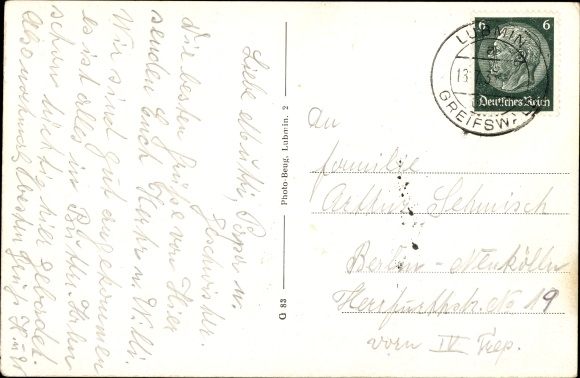 Liebe Mutti, Papa u.
Geschwister.
Die besten Grüße von Hier
senden Euch Käthe u. Willi.
Wir sind gut angekommen
es ist alles in Butter. Haben
schon tüchtig hier gebadet.
Also nochmals Grüße
Photo-Beug. Lubmin. 2
G 83
6 6
Deutsches Reich
LUBMIN
GREIFSW.
An
Familie
Arthur Schmisch
Berlin-Neukölln
Herrfurthstr. No 19
vorn IV Trep.